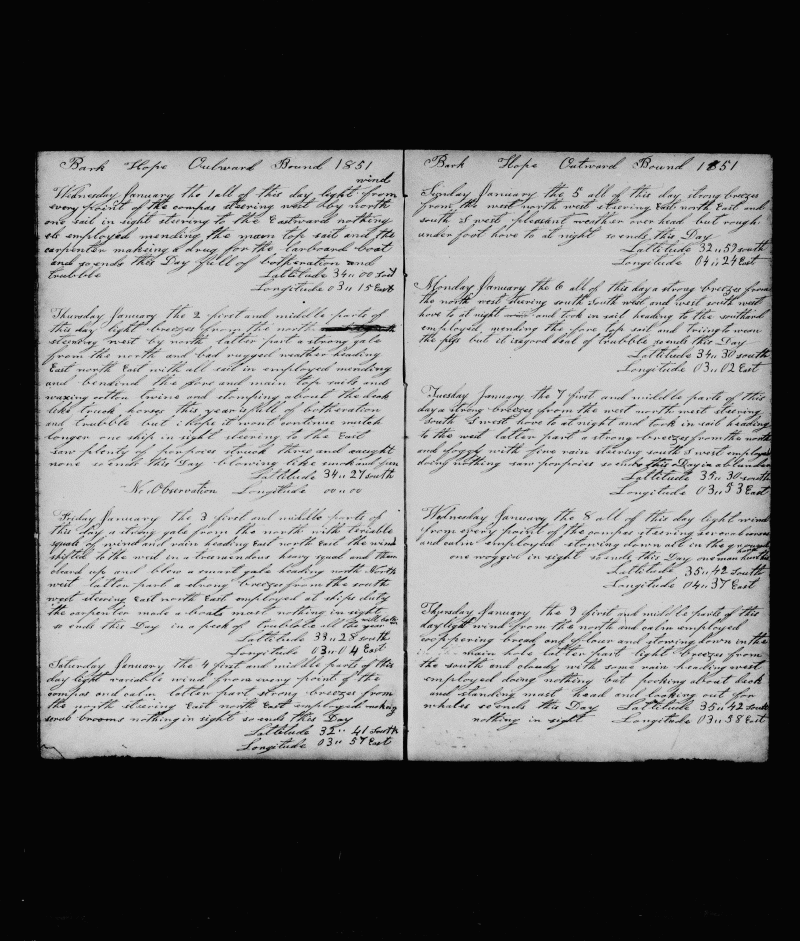 Bark Hope Outward Bound 1851
wind
Wednesday January the 1 all of this day light from
every point of the compas steering west by north
one sail in sight steering to the Eastward nothing
els employed mending the main top sail and the
carpenter makeing a drug for the larboard boat
and so ends this Day full of botheration and
trubble Lattitude 34 " 00 South
Longitude 03 " 15 East
Thursday January the 2 first and middle parts of
this day light breezes from the north
steering west by north latter part a strong gale
from the north and bad rugged weather heading
East north East with all sail in employed mending
and bending the fore and main top sails and
waxing cotton twine and stomping about the deck
like truck horses this year is full of botheration
and trubble but i hope it wont continue mutch
longer one ship in sight steering to the East
saw plenty of porpoies struck three and caught
none so ends this Day blowing like smoak and fun
Lattitude 34 " 27 South
No Observation Longitude 00 " 00
Friday January the 3 first and middle parts of
this day a strong gale from the north with terrible
squals of wind and rain heading East north East the wind
shifted to the west in a tremendous heavy squal and then
cleard up and blew a smart gale heading north North
west latter part a strong breezes from the south
west steering East north East employed at ships duty
the carpenter made a boats mast nothing in sight
so ends this Day in a peck of trubble all the year
Lattitude 33 " 28 South
Longitude 03 " 04 East
Saturday January the 4 first and middle parts of this
day light variable wind from every point of the
compas and calm latter part strong breezes from
the north steering East north East employed making
scrub brooms nothing in sight so ends this Day
Lattitude 32 " 41 South
Longitude 03 " 57 East
Bark Hope Outward Bound 1851
Sunday January the 5 all of this day strong breezes
from the west north west steering East north East and
south S west pleasent weather over head but rough
under foot hove to at night so ends this Day
Lattitude 32 " 59 south
Longitude 04 " 24 East
Monday January the 6 all of this day a strong breezes from
the north west steering south south west and east south west
hove to at night and took in sail heading to the southard
employed mending the fore top sail and trieing to wean
the pigs but it is a good deal of trubble so ends this Day
Lattitude 34 " 30 south
Longitude 03 " 02 East
Tuesday January the 7 first and middle parts of this
day a strong breezes from the west north west steering
South S west hove to at night and took in sail heading
to the west latter part a strong breezes from the north
and foggy with fine rain steering south S west employed
doing nothing saw porpoies so ends this Day in a
Lattitude 35 " 30 south
Longitude 03 " 53 East
Wednesday January the 8 all of this day light wind
from every point of the compas steering several courses
and calm employed stowing down all in the ground
one woggin in sight so ends this Day one man
Lattitude 35 " 42 South
Longitude 04 " 37 East
Thursday January the 9 first and middle parts of this
day light wind from the north and calm employed
coppering bread and flour and stowing down in the
main hole latter part light breezes from
the south end cloudy with some rain heading west
employed doing nothing but pocking about deck
and standing mast head and looking out for
whales so ends this Day Lattitude 35 " 42 South
nothing in sight Longitude 03 " 58 East